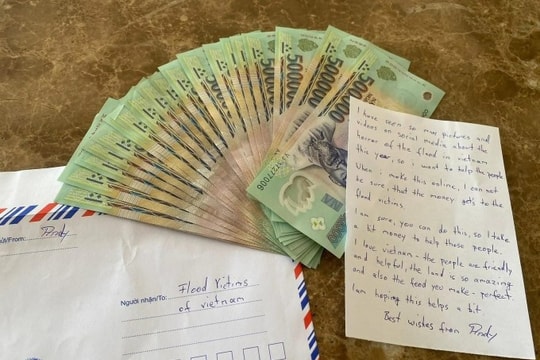 500000
500000
500000
500000
I have seen so many pictures and
videos on social media about the
horror of the flood in vietnam
this year, so I want to help the people
When i make this online, I can not
be sure, that the money gets to the
flood victims.
I am sure, you can do this, so I take
a bit money to help those people.
I love vietnam - the people are friendly
and helpful, the land is so amazing
and also the food you make - perfect
I am hoping this helps a bit
Best wishes from
Gửi/From:
Người nhận/To: Flood Victims
of vietnam